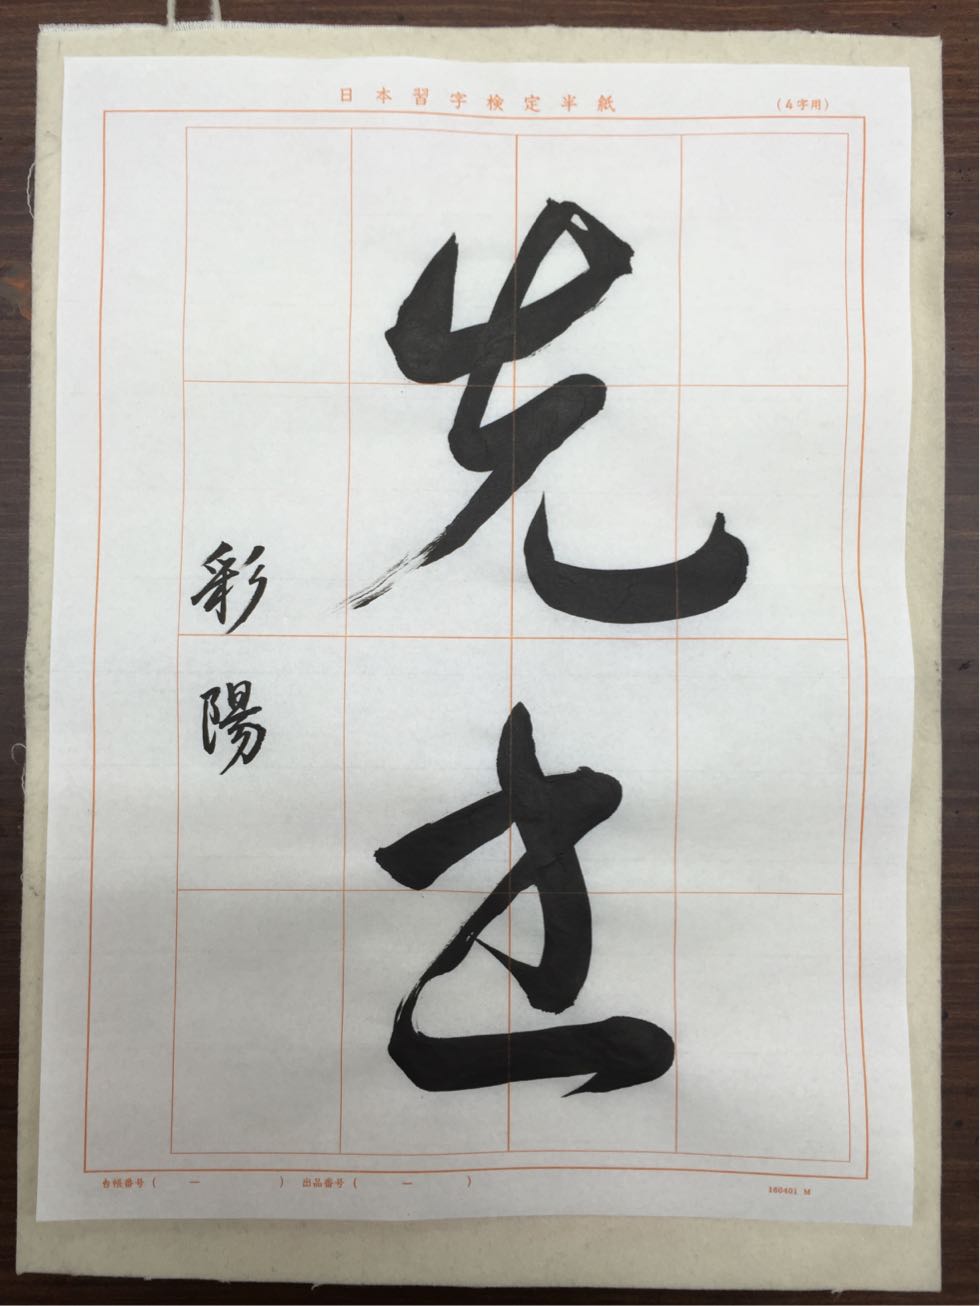 日本習字検定半紙
(4字用)
先
彩陽
台帳番号 ( ー ) 出品番号 ( ー )
160401 M